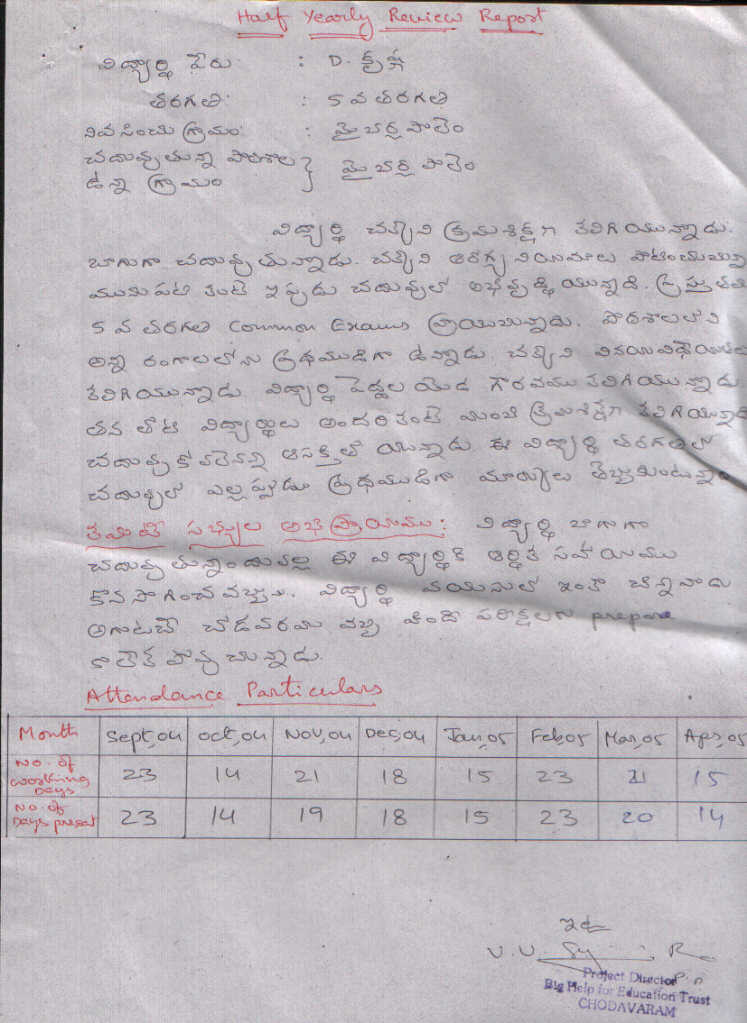 Half Yearly Review Report
విద్యార్థి పేరు : D. కృష్ణ
తరగతి : 5 వ తరగతి
నివసించు గ్రామం : మైచర్ల పాలెం
చదువుతున్న పాఠశాల } మైచర్ల పాలెం
ఉన్న గ్రామం
విద్యార్థి చక్కని క్రమశిక్షణ కలిగియున్నాడు.
బాగుగా చదువుతున్నాడు. చక్కని ఆరోగ్య నియమాలు
మునుపటి కంటే ఇప్పుడు చదువులో అభివృద్ధి యున్నది. ప్రస్తుతం
5 వ తరగతి Common Exams వ్రాయుచున్నాడు. పాఠశాలలోని
అన్ని రంగాలలోను ప్రథముడిగా ఉన్నాడు. చక్కని
కలిగియున్నాడు. విద్యార్థి పెద్దల యెడ గౌరవము కలిగియున్నాడు
తన తోటి విద్యార్థులు అందరికంటే మంచి క్రమశిక్షణ కలిగియున్నాడు
చదువుకోవాలనే ఆసక్తితో యున్నాడు. ఈ విద్యార్థి తరగతిలో
చదువులో ఎల్లప్పుడూ ప్రథముడిగా మార్కులు తెచ్చుకుంటున్నాడు
కమిటీ సభ్యుల అభిప్రాయము : విద్యార్థి బాగుగా
చదువుతున్నందువల్ల ఈ విద్యార్థికి ఆర్థిక సహాయము
కొనసాగించవచ్చును. విద్యార్థి వయసులో ఇంకా చిన్నవాడు
అగుటచే చోడవరము వచ్చి హిందీ పరీక్షలకు prepare
కాలేక పోవుచున్నాడు.
Attendance Particulars
Month Sept,04 Oct,04 Nov,04 Dec,04 Jan,05 Feb,05 Mar,05 Apr,05
No. of working Days 23 14 21 18 15 23 21 15
No. of Days present 23 14 19 18 15 23 20 14
ఇట్లు
Project Director
Big Help for Education Trust
CHODAVARAM